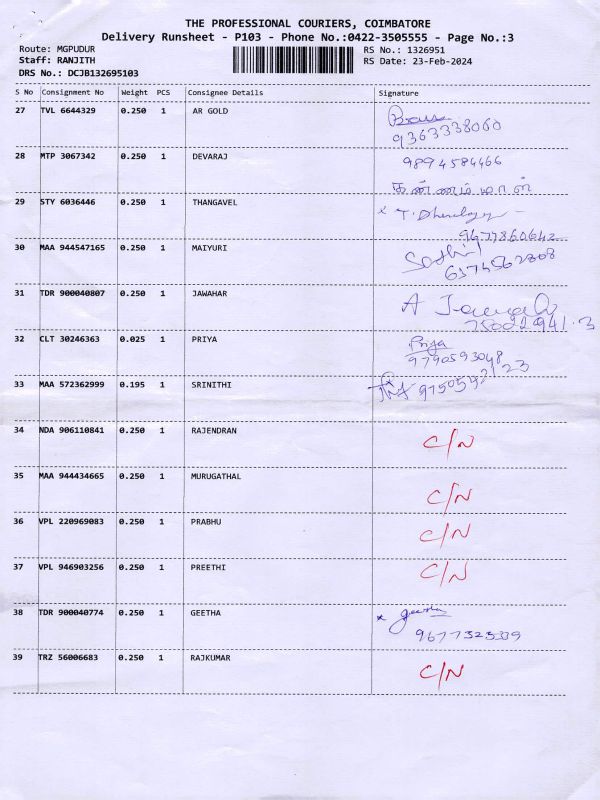 THE PROFESSIONAL COURIERS, COIMBATORE
Delivery Runsheet - P103 - Phone No.:0422-3505555 - Page No.:3
Route: MGPUDUR RS No.: 1326951
Staff: RANJITH RS Date: 23-Feb-2024
DRS No.: DCJB132695103
S No Consignment No Weight PCS Consignee Details Signature
27 TVL 6644329 0.250 1 AR GOLD
9363338060
28 MTP 3067342 0.250 1 DEVARAJ 9894584466
29 STY 6036446 0.250 1 THANGAVEL
9677860642
30 MAA 944547165 0.250 1 MAIYURI
6374562808
31 TDR 900040807 0.250 1 JAWAHAR A
32 CLT 30246363 0.025 1 PRIYA Priya
9790593048
33 MAA 572362999 0.195 1 SRINITHI
34 NDA 906110841 0.250 1 RAJENDRAN C/N
35 MAA 944434665 0.250 1 MURUGATHAL C/N
36 VPL 220969083 0.250 1 PRABHU C/N
37 VPL 946903256 0.250 1 PREETHI C/N
38 TDR 900040774 0.250 1 GEETHA geetha
9677323339
39 TRZ 56006683 0.250 1 RAJKUMAR C/N